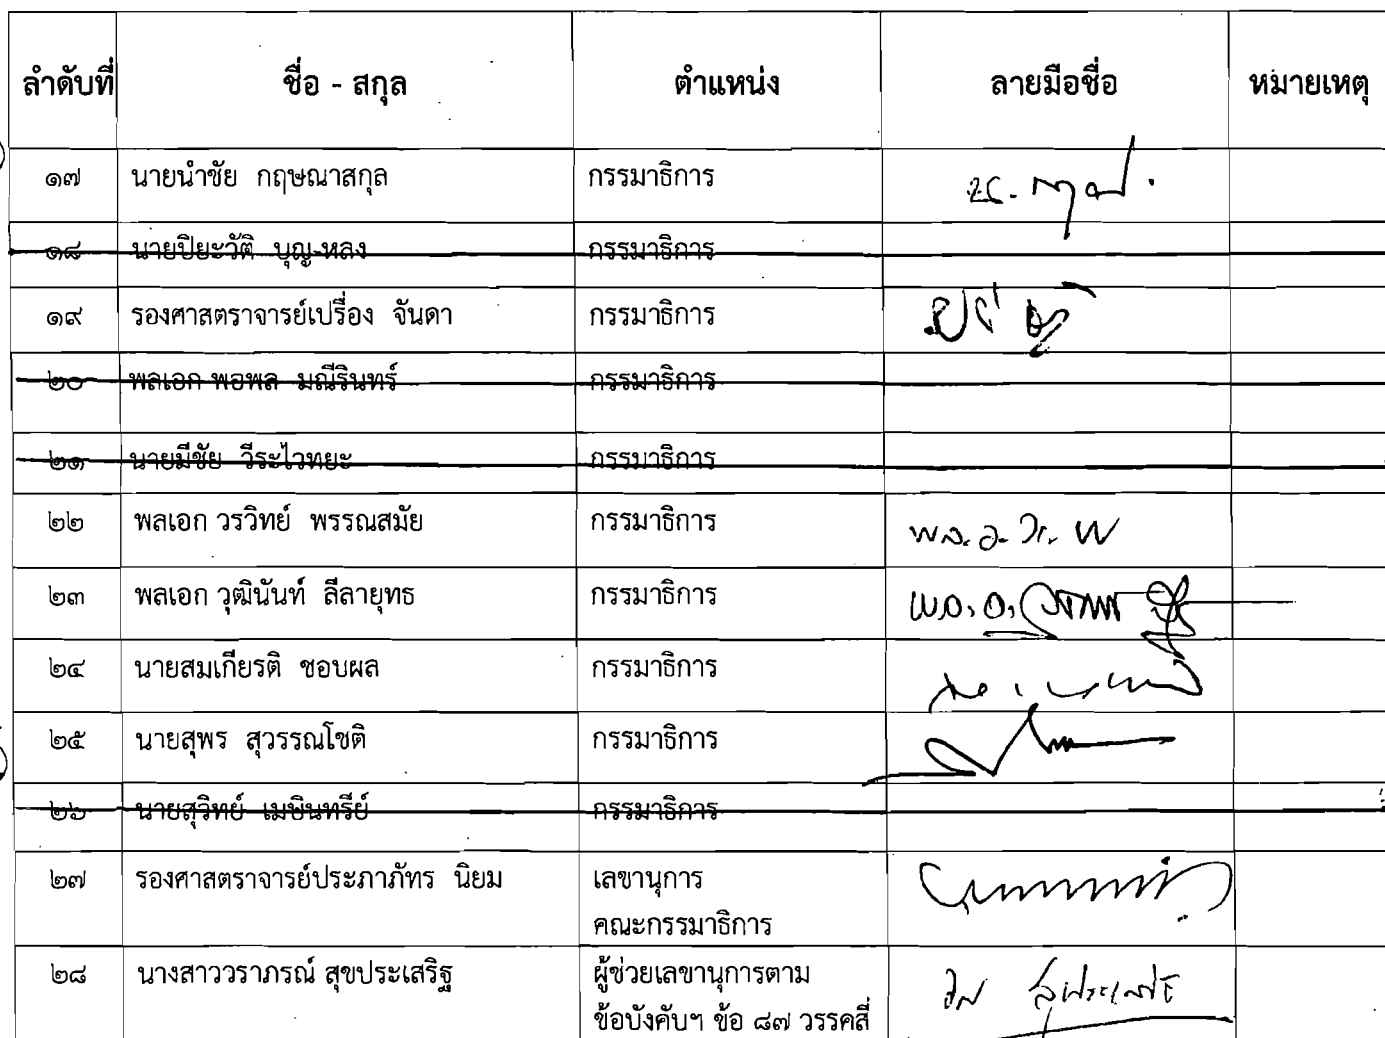 ลำดับที่ ชื่อ - สกุล ตำแหน่ง ลายมือชื่อ หมายเหตุ
๑๗ นายนำชัย กฤษณาสกุล กรรมาธิการ
๑๘ นายปิยะวัติ บุญ-หลง กรรมาธิการ
๑๙ รองศาสตราจารย์เปรื่อง จันดา กรรมาธิการ
๒๐ พลเอก พอพล มณีรินทร์ กรรมาธิการ
๒๑ นายมีชัย วีระไวทยะ กรรมาธิการ
๒๒ พลเอก วรวิทย์ พรรณสมัย กรรมาธิการ
๒๓ พลเอก วุฒินันท์ ลีลายุทธ กรรมาธิการ
๒๔ นายสมเกียรติ ชอบผล กรรมาธิการ
๒๕ นายสุพร สุวรรณโชติ กรรมาธิการ
๒๖ นายสุวิทย์ เมษินทรีย์ กรรมาธิการ
๒๗ รองศาสตราจารย์ประภาภัทร นิยม เลขานุการ
คณะกรรมาธิการ
๒๘ นางสาววราภรณ์ สุขประเสริฐ ผู้ช่วยเลขานุการตาม
ข้อบังคับฯ ข้อ ๘๗ วรรคสี่